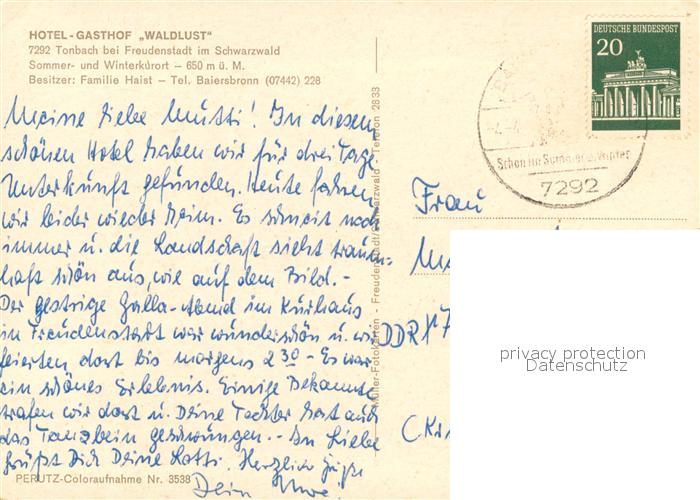 HOTEL-GASTHOF „WALDLUST"
7292 Tonbach bei Freudenstadt im Schwarzwald
Sommer- und Winterkurort – 650 m ü. M.
Besitzer: Familie Haist – Tel. Baiersbronn (07442) 228
Meine liebe Mutti! In diesem
schönen Hotel haben wir für drei Tage
Unterkunft gefunden. Heute fahren
wir leider wieder heim. Es schneit noch
immer u. die Landschaft sieht traum-
haft schön aus, wie auf dem Bild.-
Der gestrige Galla-Abend im Kurhaus
in Freudenstadt war wunderschön u. wir
feierten dort bis morgens 2 30 - Es war
ein schönes Erlebnis. Einige Bekannte
trafen wir dort u. Deine Tochter hat auch
das Tanzbein geschwungen.- In Liebe
grüßt Dich Deine Lotti. Herzliche Grüße
Dein Uwe.
PERUTZ-Coloraufnahme Nr. 3538
Müller-Fotokarten - Freudenstadt/Schwarzwald - Telefon 2833
DEUTSCHE BUNDESPOST
20
Schön im Sommer u. Winter
7292
Frau
DDR X 7
privacy protection
Datenschutz